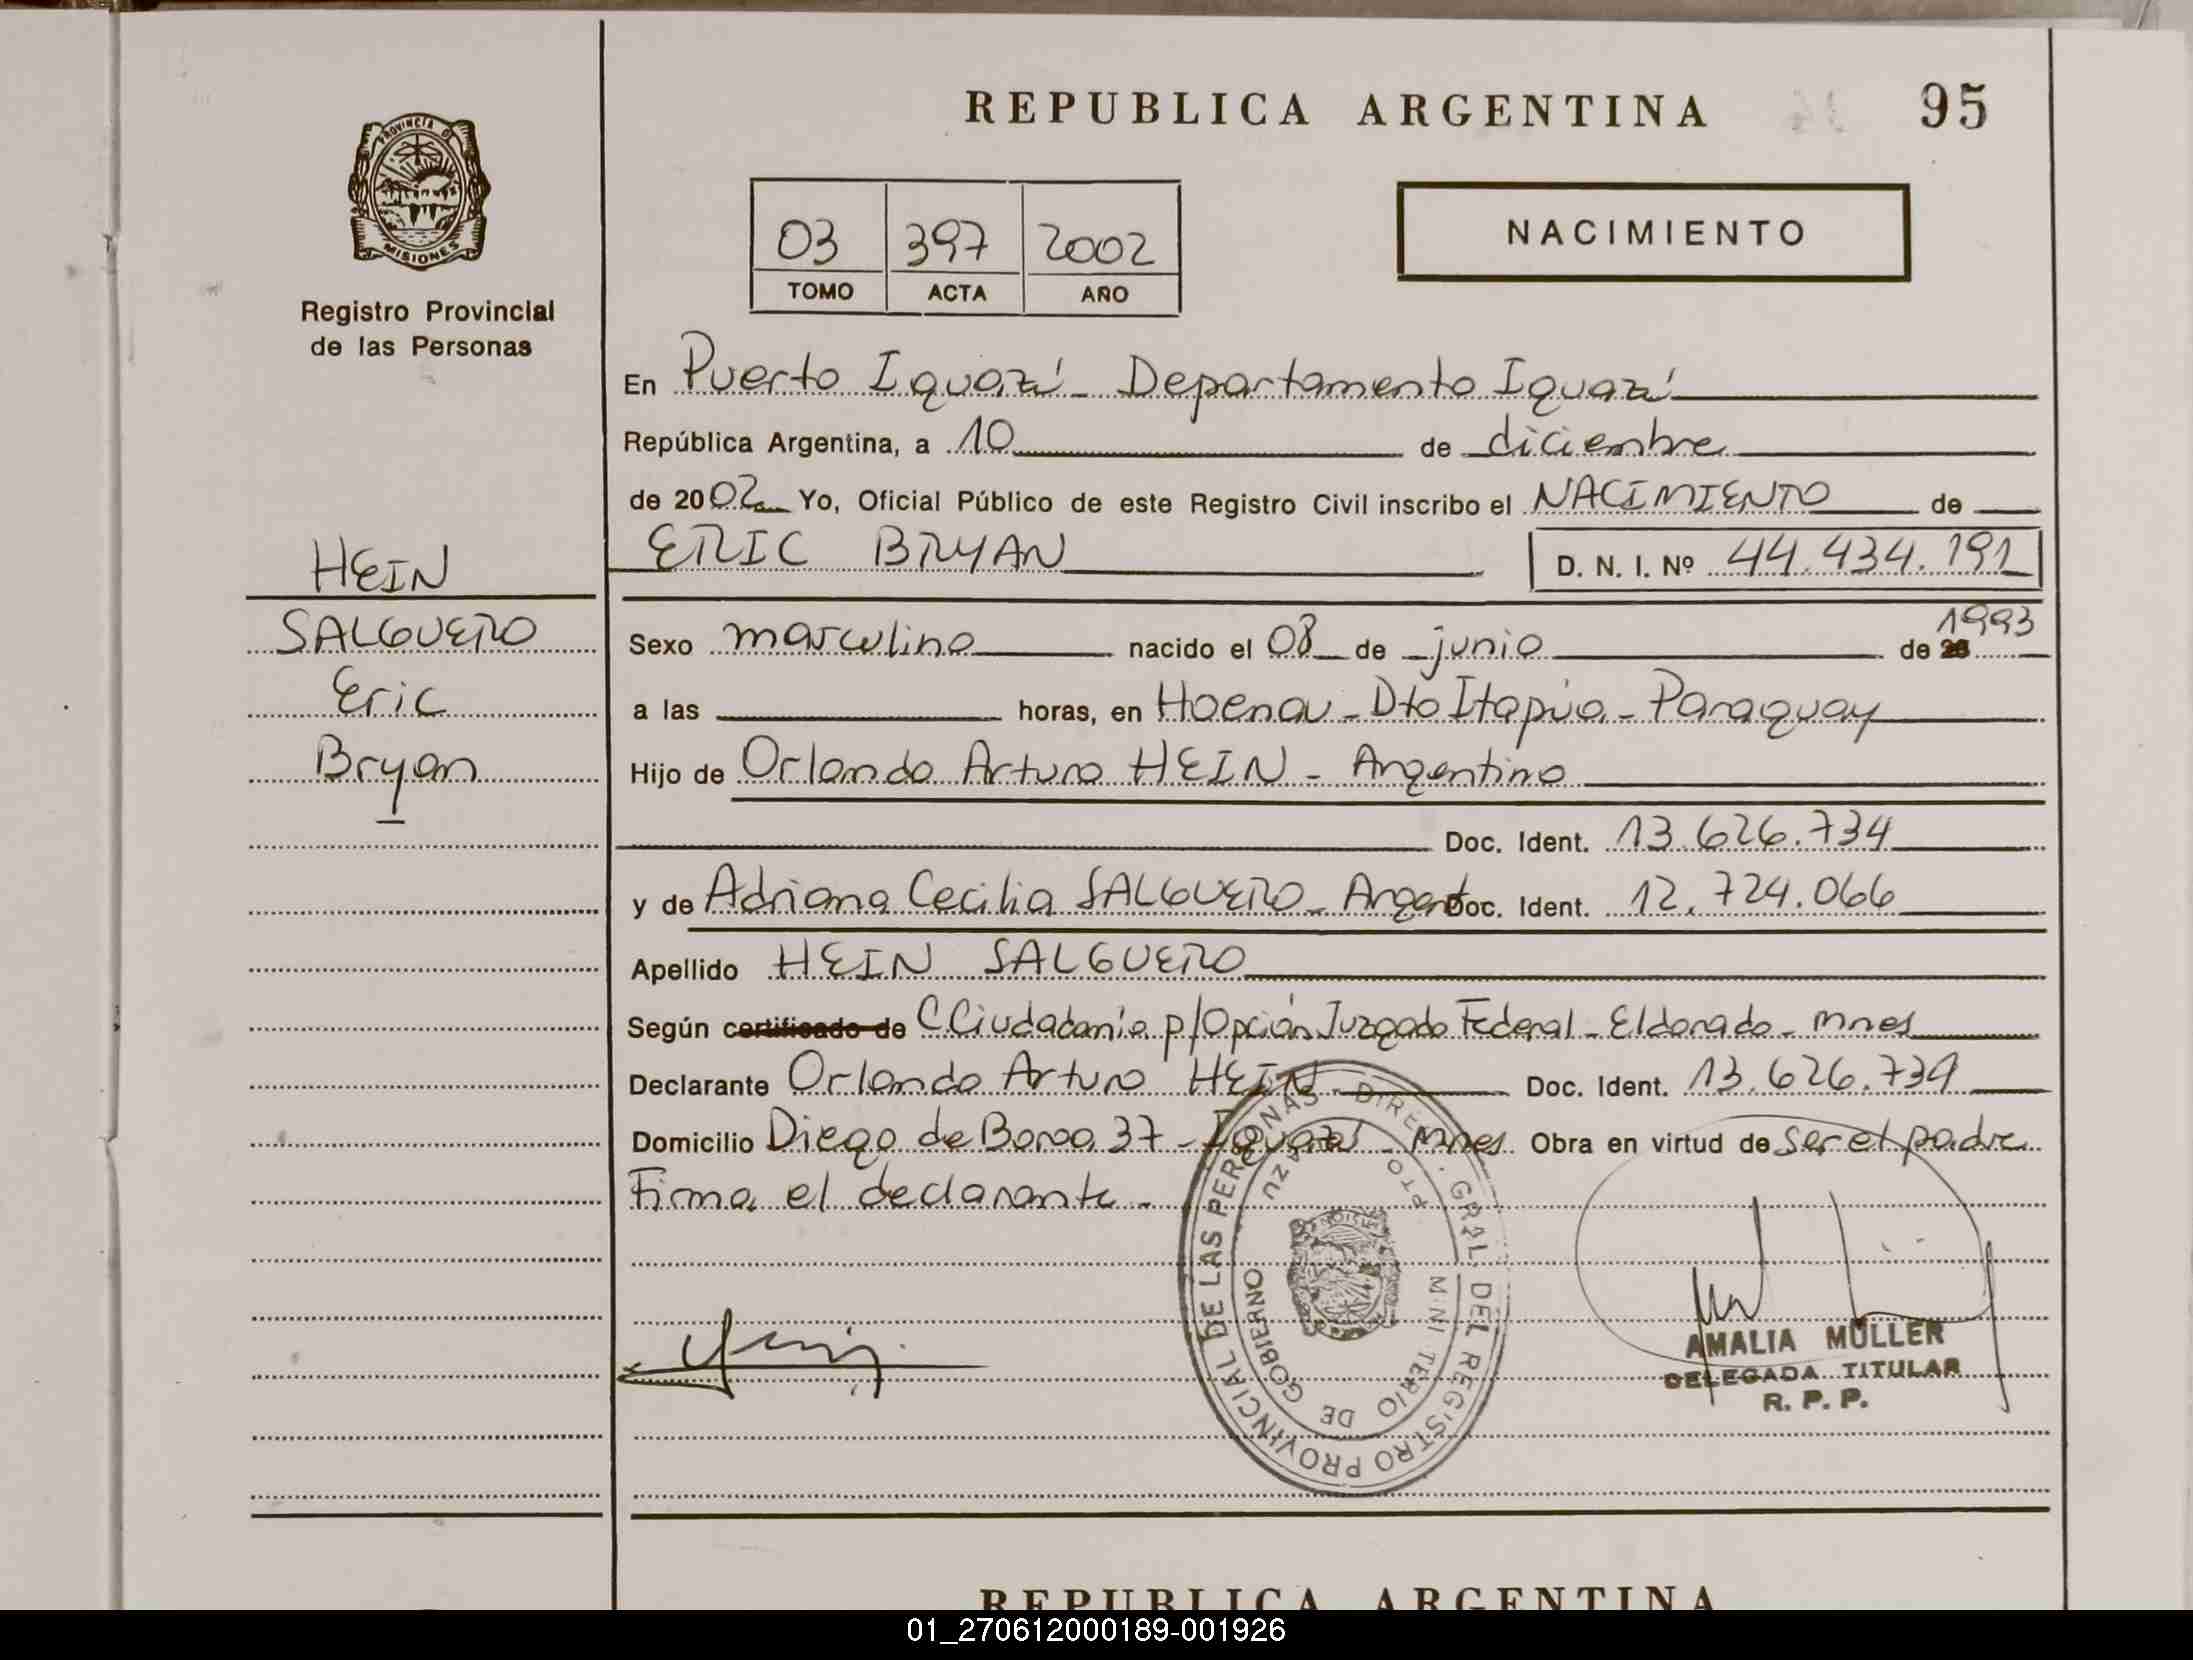 REPUBLICA ARGENTINA 95
PROVINCIA DE
MISIONES
Registro Provincial
de las Personas
03 397 2002
TOMO ACTA AÑO
NACIMIENTO
En Puerto Iguazú - Departamento Iguazú
República Argentina, a 10 de diciembre
de 2002 Yo, Oficial Público de este Registro Civil inscribo el NACIMIENTO de
ERIC BRYAN D. N. I. Nº 44.434.191
HEIN
SALGUERO
Eric
Bryan
Sexo masculino nacido el 08 de junio de 1993
a las horas, en Hoenau - Dto Itapúa - Paraguay
Hijo de Orlando Arturo HEIN - Argentino
Doc. Ident. 13.626.734
y de Adriana Cecilia SALGUERO - Argent Doc. Ident. 12.724.066
Apellido HEIN SALGUERO
Según certificado de C.Ciudadanía p/Opción Juzgado Federal - Eldorado - Mnes
Declarante Orlando Arturo HEIN Doc. Ident. 13.626.734
Domicilio Diego de Boroa 37 - Iguazú - Mnes Obra en virtud de ser el padre
Firma el declarante -
DIREC. GRAL. DEL REGISTRO PROVINCIAL DE LAS PERSONAS
MINI TERIO DE GOBIERNO
PTO
AZU
AMALIA MÜLLER
DELEGADA TITULAR
R. P. P.
REPUBLICA ARGENTINA
01_270612000189-001926